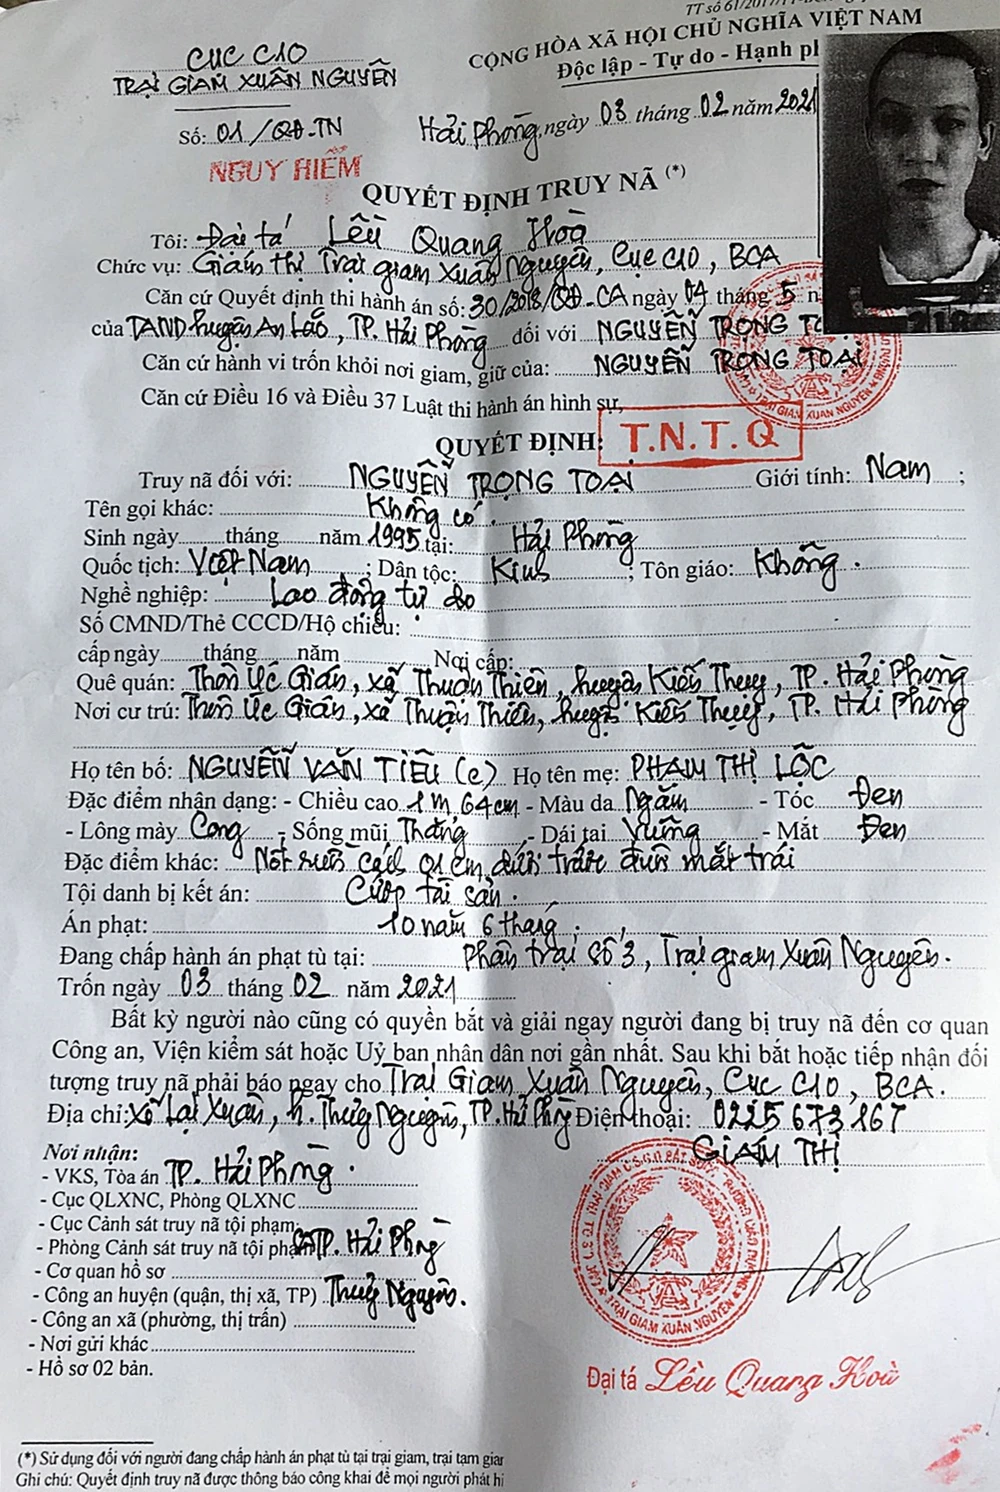 TT số 61/2017/TT-B
CỤC C10
TRẠI GIAM XUÂN NGUYÊN
CỘNG HÒA XÃ HỘI CHỦ NGHĨA VIỆT NAM
Độc lập - Tự do - Hạnh ph
Số: 01/QĐ-TN
Hải Phòng, ngày 03 tháng 02 năm 2021
NGUY HIỂM
QUYẾT ĐỊNH TRUY NÃ (*)
Tôi: Đại tá Lều Quang Hoà
Chức vụ: Giám thị Trại giam Xuân Nguyên, Cục C10, BCA
Căn cứ Quyết định thi hành án số: 30/2018/QĐ-CA ngày 04 tháng 5 n
của TAND huyện An Lão, TP. Hải Phòng đối với NGUYỄN TRỌNG TO
Căn cứ hành vi trốn khỏi nơi giam, giữ của: NGUYỄN TRỌNG TOẠI
Căn cứ Điều 16 và Điều 37 Luật thi hành án hình sự,
QUYẾT ĐỊNH:
T.N.T.Q
Truy nã đối với: NGUYỄN TRỌNG TOẠI Giới tính: Nam ;
Tên gọi khác: Không có.
Sinh ngày tháng năm 1995 tại: Hải Phòng
Quốc tịch: Việt Nam ; Dân tộc: Kinh ; Tôn giáo: Không.
Nghề nghiệp: Lao động tự do
Số CMND/Thẻ CCCD/Hộ chiếu:
cấp ngày tháng năm Nơi cấp:
Quê quán: Thôn Úc Gián, xã Thuận Thiên, huyện Kiến Thụy, TP. Hải Phòng
Nơi cư trú: Thôn Úc Gián, xã Thuận Thiên, huyện Kiến Thụy, TP. Hải Phòng
Họ tên bố: NGUYỄN VĂN TIÊU (c) Họ tên mẹ: PHẠM THỊ LỘC
Đặc điểm nhận dạng: - Chiều cao 1m 64cm - Màu da Ngăm - Tóc Đen
- Lông mày Cong - Sống mũi Thẳng - Dái tai Vuông - Mắt Đen
Đặc điểm khác: Nốt ruồi cách 01 cm dưới trước đuôi mắt trái
Tội danh bị kết án: Cướp tài sản.
Án phạt: 10 năm 6 tháng.
Đang chấp hành án phạt tù tại: Phân trại số 3, Trại giam Xuân Nguyên.
Trốn ngày 03 tháng 02 năm 2021
Bất kỳ người nào cũng có quyền bắt và giải ngay người đang bị truy nã đến cơ quan
Công an, Viện kiểm sát hoặc Uỷ ban nhân dân nơi gần nhất. Sau khi bắt hoặc tiếp nhận đối
tượng truy nã phải báo ngay cho Trại Giam Xuân Nguyên, Cục C10, BCA.
Địa chỉ: Xã Lại Xuân, h. Thuỷ Nguyên, TP. Hải Phòng Điện thoại: 0225 673 167
GIÁM THỊ
Nơi nhận:
- VKS, Tòa án TP. Hải Phòng.
- Cục QLXNC, Phòng QLXNC
- Cục Cảnh sát truy nã tội phạm
- Phòng Cảnh sát truy nã tội phạm CATP. Hải Phòng
- Cơ quan hồ sơ
- Công an huyện (quận, thị xã, TP) Thuỷ Nguyên.
- Công an xã (phường, thị trấn)
- Nơi gửi khác
- Hồ sơ 02 bản.
TRẠI GIAM XUÂN NGUYÊN
Đại tá Lều Quang Hoà
(*) Sử dụng đối với người đang chấp hành án phạt tù tại trại giam, trại tạm giam
Ghi chú: Quyết định truy nã được thông báo công khai để mọi người phát hi